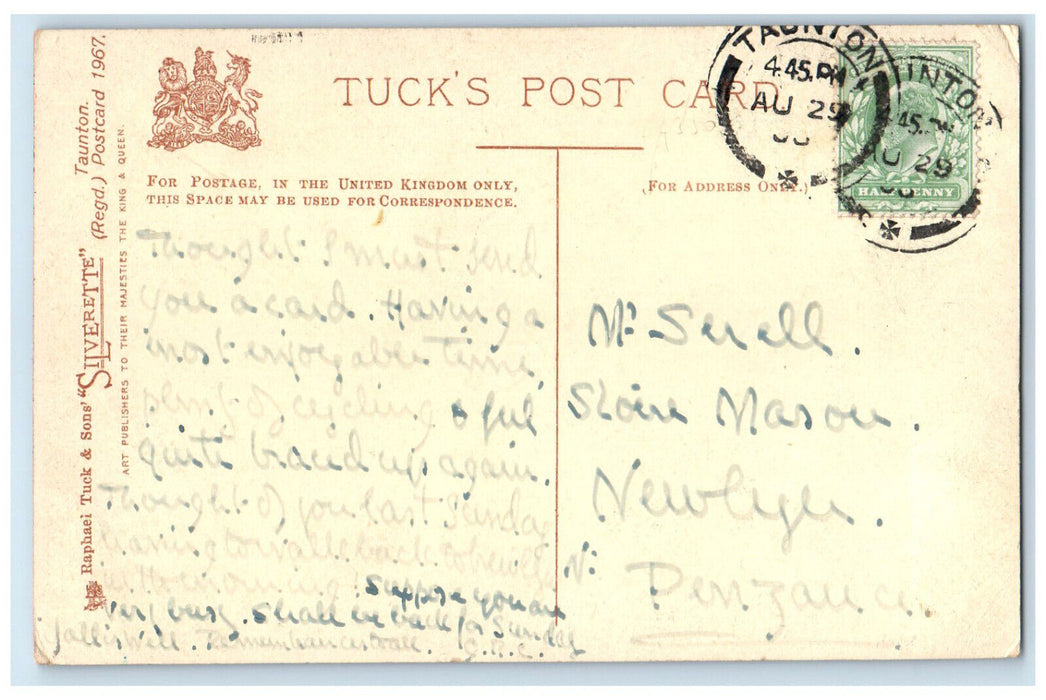 TUCK'S POST CARD
FOR POSTAGE, IN THE UNITED KINGDOM ONLY,
THIS SPACE MAY BE USED FOR CORRESPONDENCE.
(FOR ADDRESS ONLY.)
TAUNTON
4.45.PM
AU 29
INTON
45.P
AU 29
HALFPENNY
Taunton.
Raphael Tuck & Sons' "SILVERETTE" (Regd.) Postcard 1967.
ART PUBLISHERS TO THEIR MAJESTIES THE KING & QUEEN.
Thought I must send
you a card. Having a
most enjoyable time,
plenty of cycling & feel
quite braced up again.
Thought of you last Sunday
having to walk back to
in the morning! Suppose you are
very busy. Shall be back for Sunday
all's well. Remembrances to all. C.
Mr Serell.
Stone Mason.
Newlyn.
Nr Penzance.